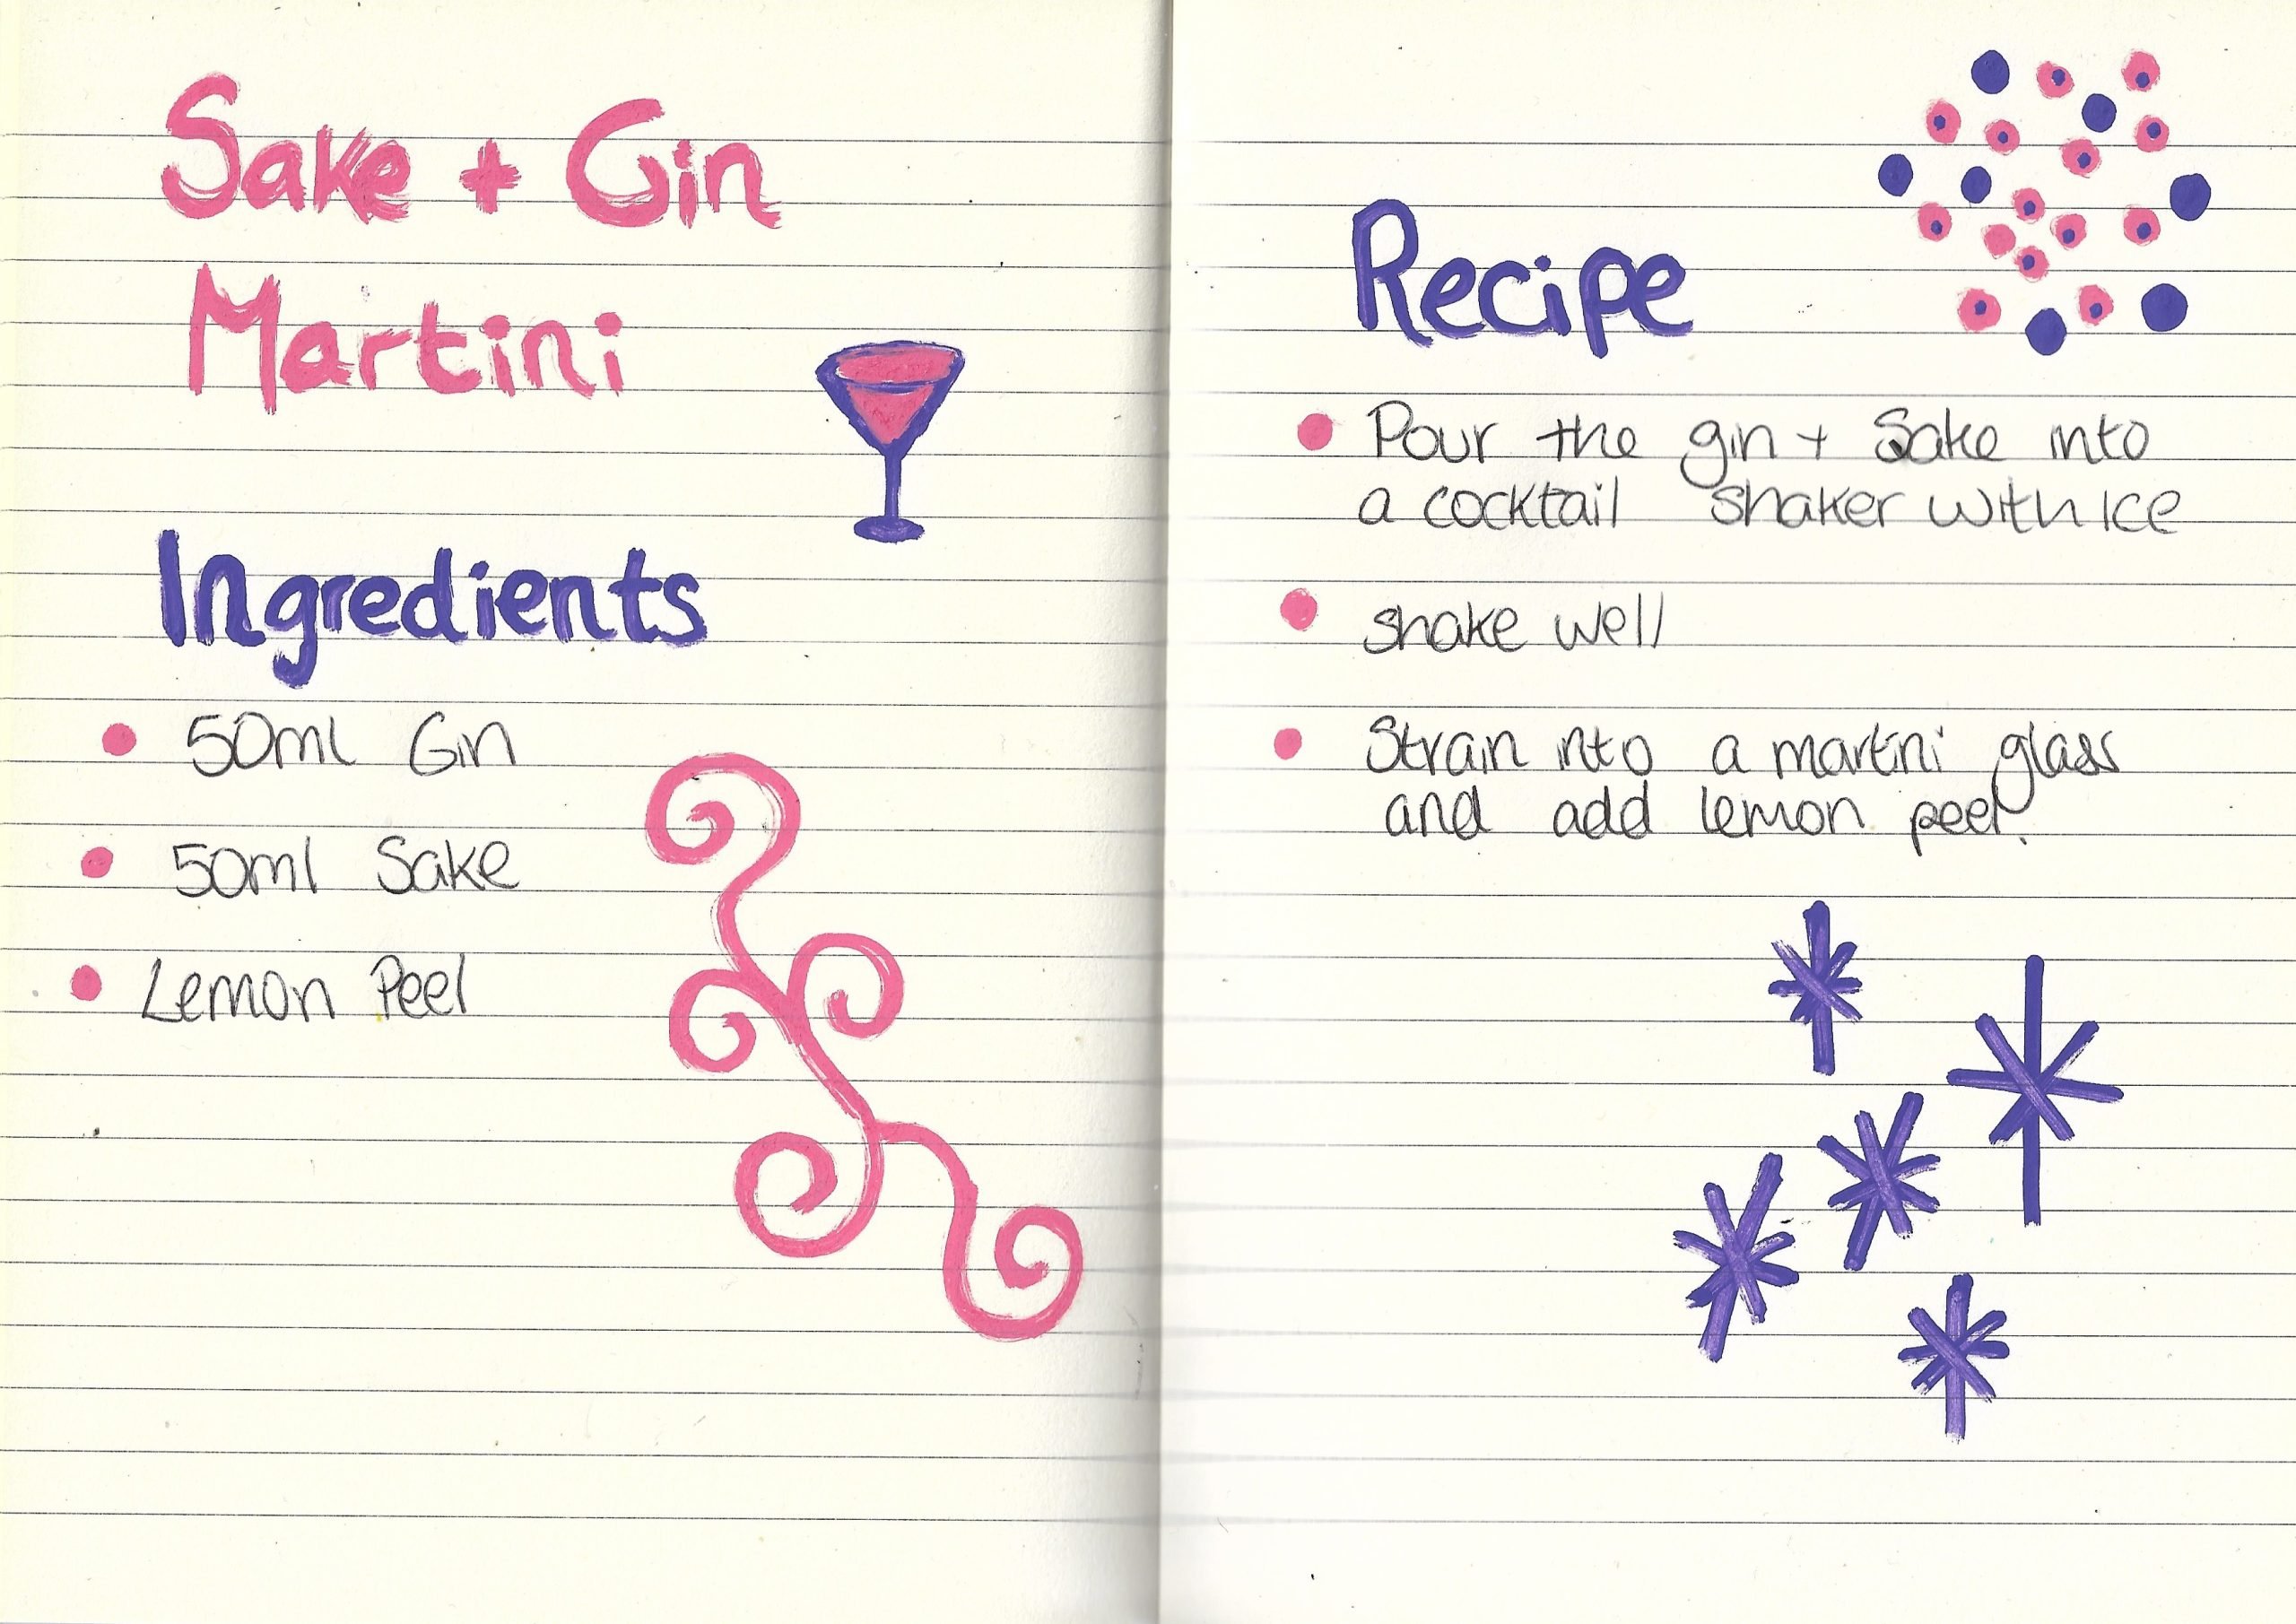 Sake + Gin
Martini
Ingredients
50ml Gin
50ml Sake
Lemon Peel
Recipe
Pour the gin + Sake into
a cocktail shaker with Ice
shake well
Strain into a martini glass
and add lemon peel.